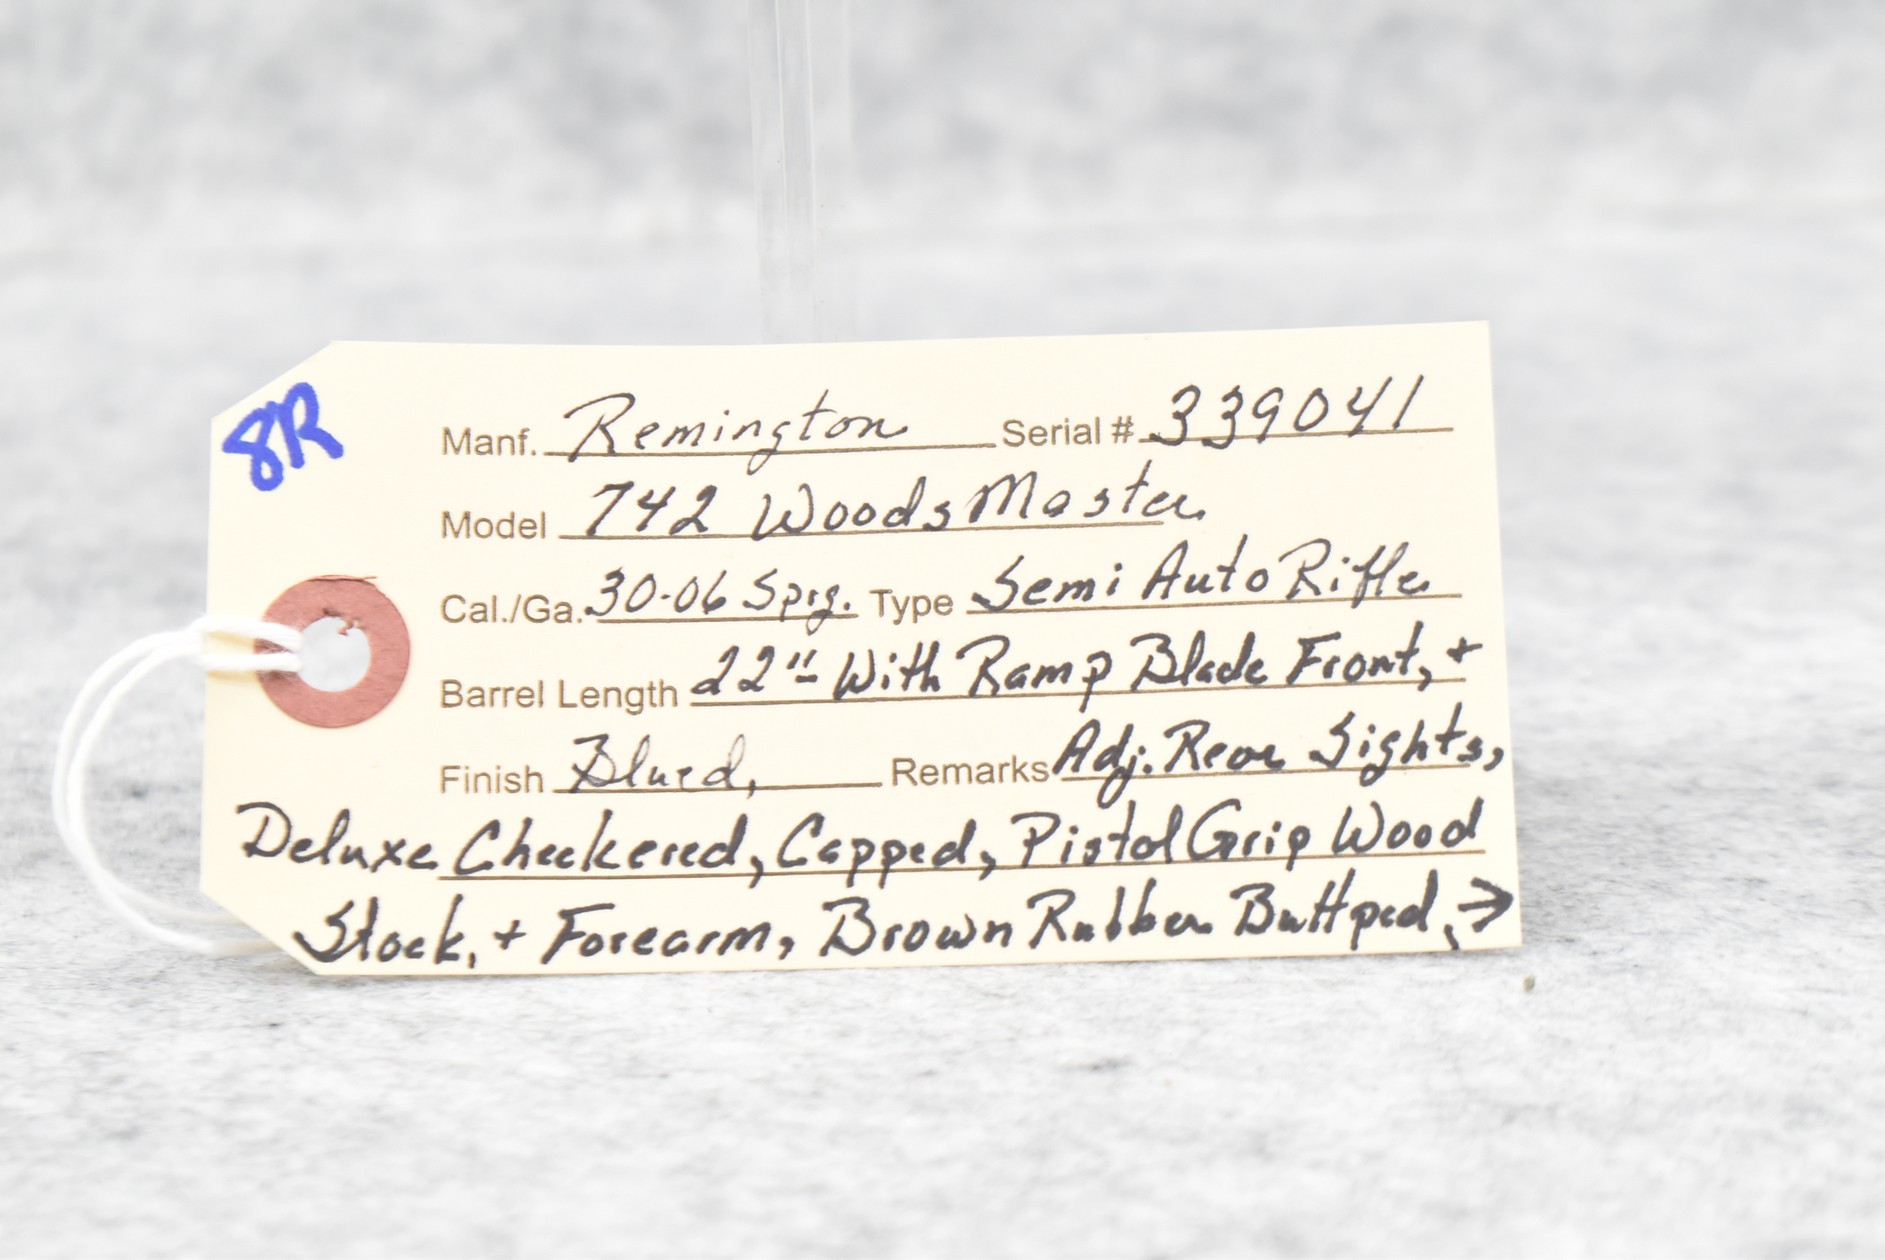 8R
Manf. Remington Serial # 339041
Model 742 WoodsMaster
Cal./Ga. 30-06 Sprg. Type Semi Auto Rifle
Barrel Length 22" With Ramp Blade Front, +
Finish Blued, Remarks Adj. Rear Sights,
Deluxe Checkered, Capped, Pistol Grip Wood
Stock, + Forearm, Brown Rubber Buttpad, →